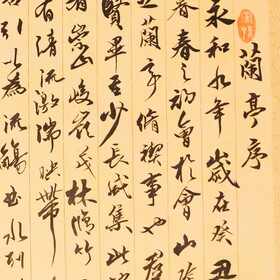 蘭亭序
永和九年歲在癸丑
暮春之初會於會山
之蘭亭脩禊事也羣
賢畢至少長咸集此
有崇山峻嶺茂林脩竹
有清流激湍映帶
引以為流觴曲水列